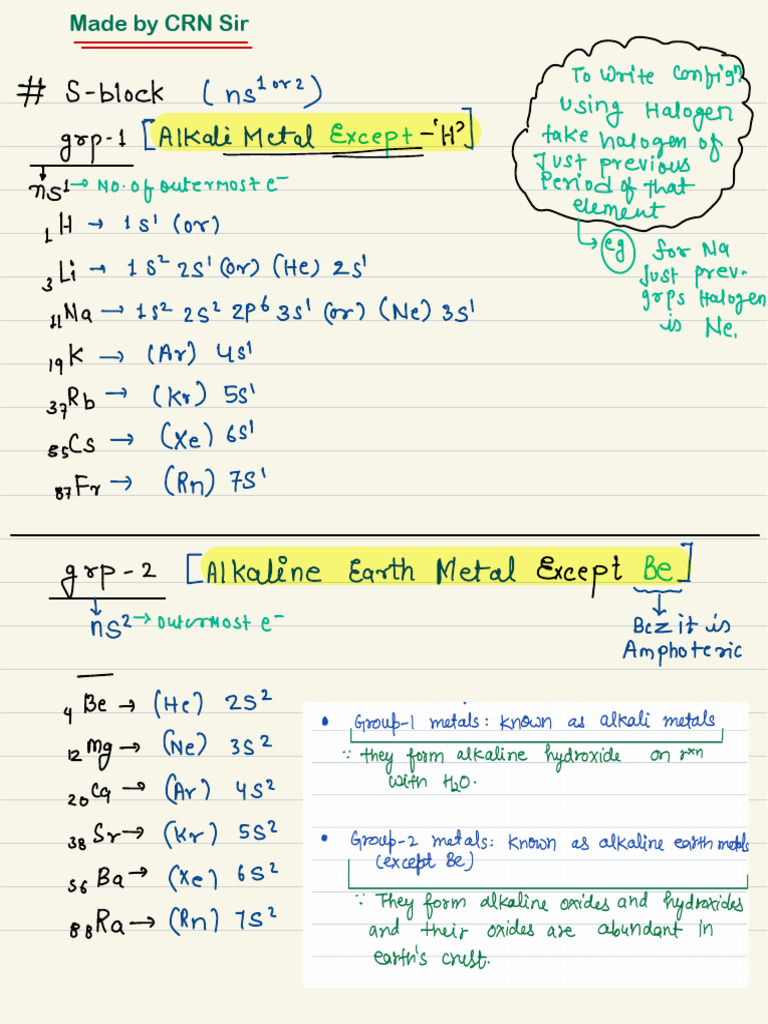 Made by CRN Sir
# S-block (ns¹ or ²)
grp-1 [Alkali Metal Except -'H']
ns¹ → No. of outermost e⁻
₁H → 1s¹ (or)
₃Li → 1s² 2s¹ (or) (He) 2s¹
₁₁Na → 1s² 2s² 2p⁶ 3s¹ (or) (Ne) 3s¹
₁₉K → (Ar) 4s¹
₃₇Rb → (Kr) 5s¹
₅₅Cs → (Xe) 6s¹
₈₇Fr → (Rn) 7s¹
To write config^n
using Halogen
take halogen of
Just previous
Period of that
element
eg for Na
Just prev.
grps Halogen
is Ne.
grp-2 [Alkaline Earth Metal Except Be]
ns² → outermost e⁻
Bcz it is
Amphoteric
₄Be → (He) 2s²
₁₂Mg → (Ne) 3s²
₂₀Ca → (Ar) 4s²
₃₈Sr → (Kr) 5s²
₅₆Ba → (Xe) 6s²
₈₈Ra → (Rn) 7s²
• Group-1 metals: known as alkali metals
∵ they form alkaline hydroxide on rxn
with H₂O.
• Group-2 metals: known as alkaline earth metals
(except Be)
∵ They form alkaline oxides and hydroxides
and their oxides are abundant in
earth's crust.